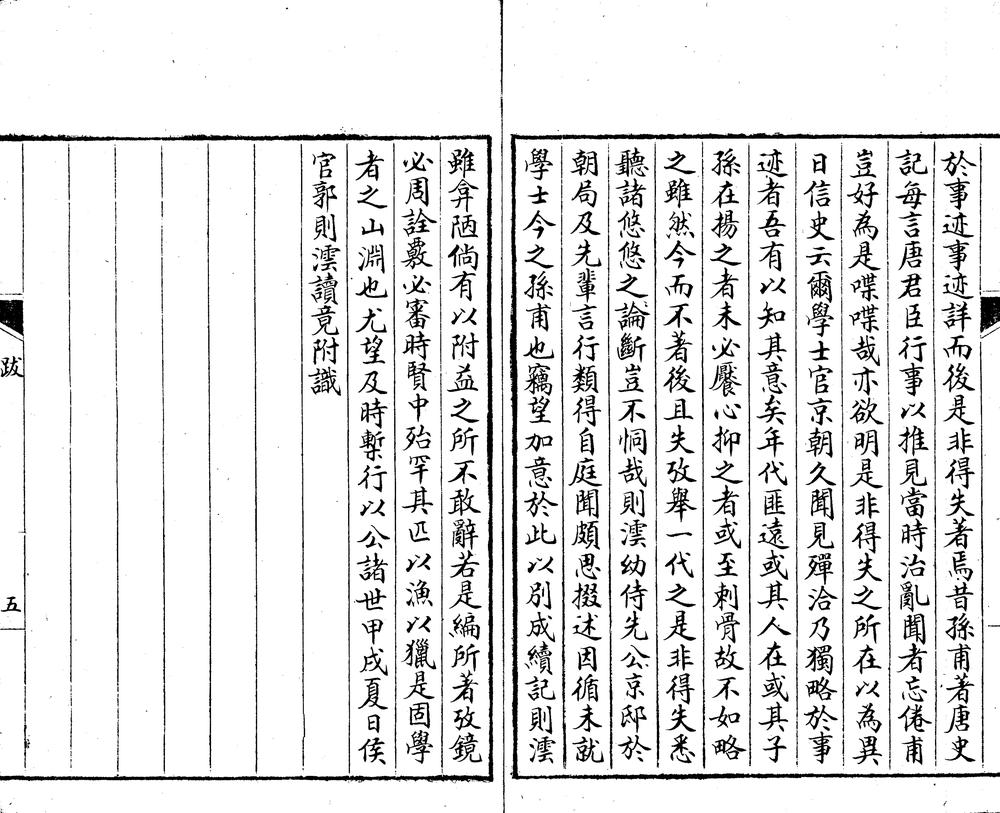 於事迹事迹詳而後是非得失著焉昔孫甫著唐史
記每言唐君臣行事以推見當時治亂聞者忘倦甫
豈好為是喋喋哉亦欲明是非得失之所在以為異
日信史云爾學士官京朝久聞見殫洽乃獨略於事
迹者吾有以知其意矣年代匪遠或其人在或其子
孫在揚之者未必饜心抑之者或至刺骨故不如略
之雖然今而不著後且失攷舉一代之是非得失悉
聽諸悠悠之論斷豈不恫哉則澐幼侍先公京邸於
朝局及先輩言行類得自庭聞頗思掇述因循未就
學士今之孫甫也竊望加意於此以別成續記則澐
雖弇陋倘有以附益之所不敢辭若是編所著攷鏡
必周詮覈必審時賢中殆罕其匹以漁以獵是固學
者之山淵也尤望及時槧行以公諸世甲戌夏日侯
官郭則澐讀竟附識
跋
五